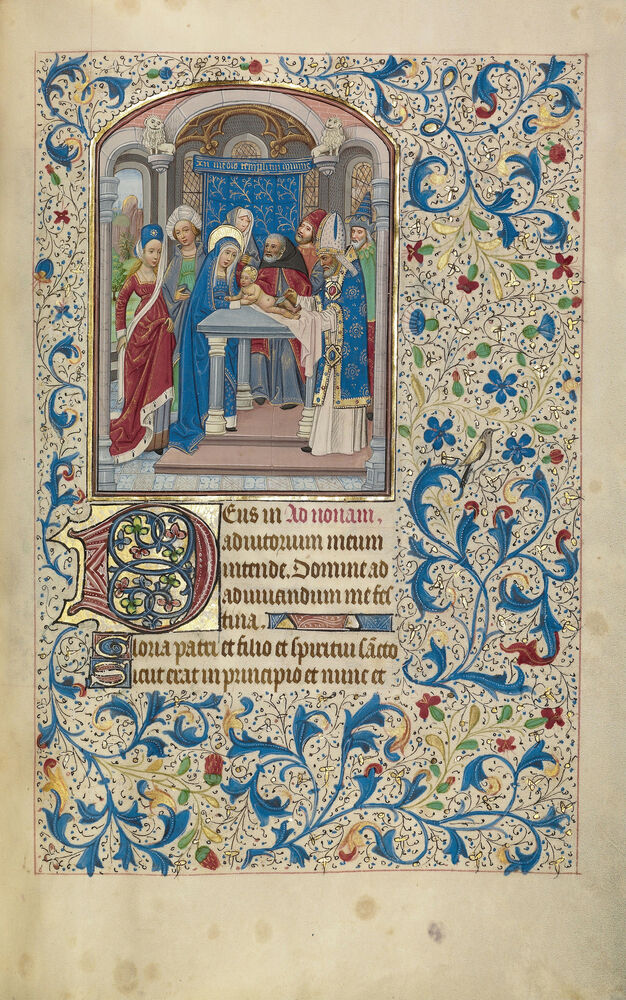 In medio templi tui
Deus in Ad nonam.
adiutorium meum
intende. Domine ad
adiuuandum me fes
tina.
Gloria patri et filio et spiritui sãcto
Sicut erat in principio et nunc et